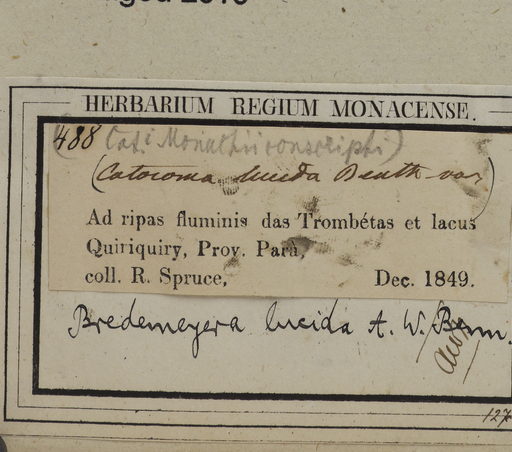 HERBARIUM REGIUM MONACENSE.
(488 Cat. Monathii conscripti)
(Catocoma lucida Benth var)
Ad ripas fluminis das Trombétas et lacus
Quiriquiry, Prov. Parà,
coll. R. Spruce, Dec. 1849.
Bredemeyera lucida A. W. Benn.
127